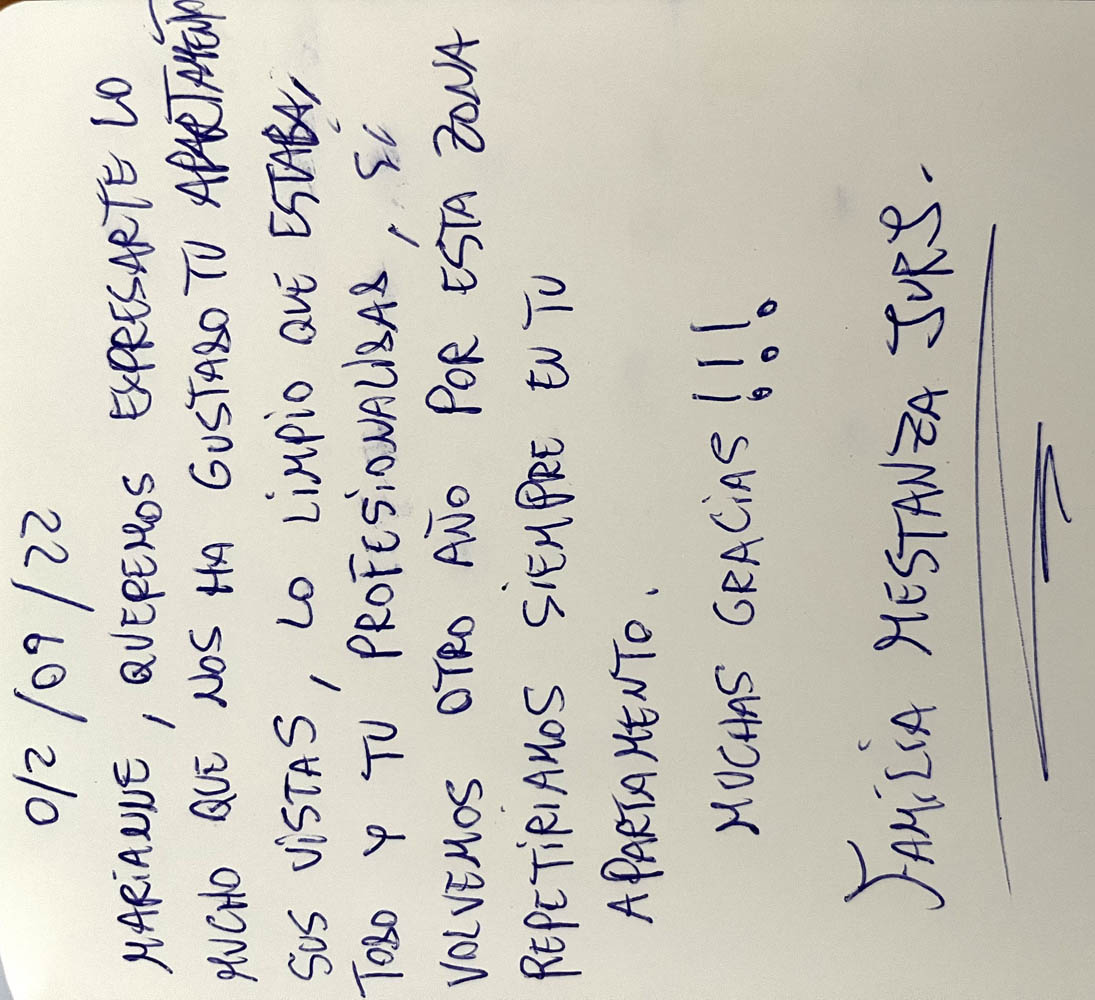 0/2/09/22
MARIANNE, QUEREMOS EXPRESARTE LO
MUCHO QUE NOS HA GUSTADO TU APARTAMENTO
SUS VISTAS, LO LIMPIO QUE ESTABA,
TODO Y TU PROFESIONALIDAD, SI
VOLVEMOS OTRO AÑO POR ESTA ZONA
REPETIRIAMOS SIEMPRE EN TU
APARTAMENTO.
MUCHAS GRACIAS!!!
FAMILIA MESTANZA JURS.